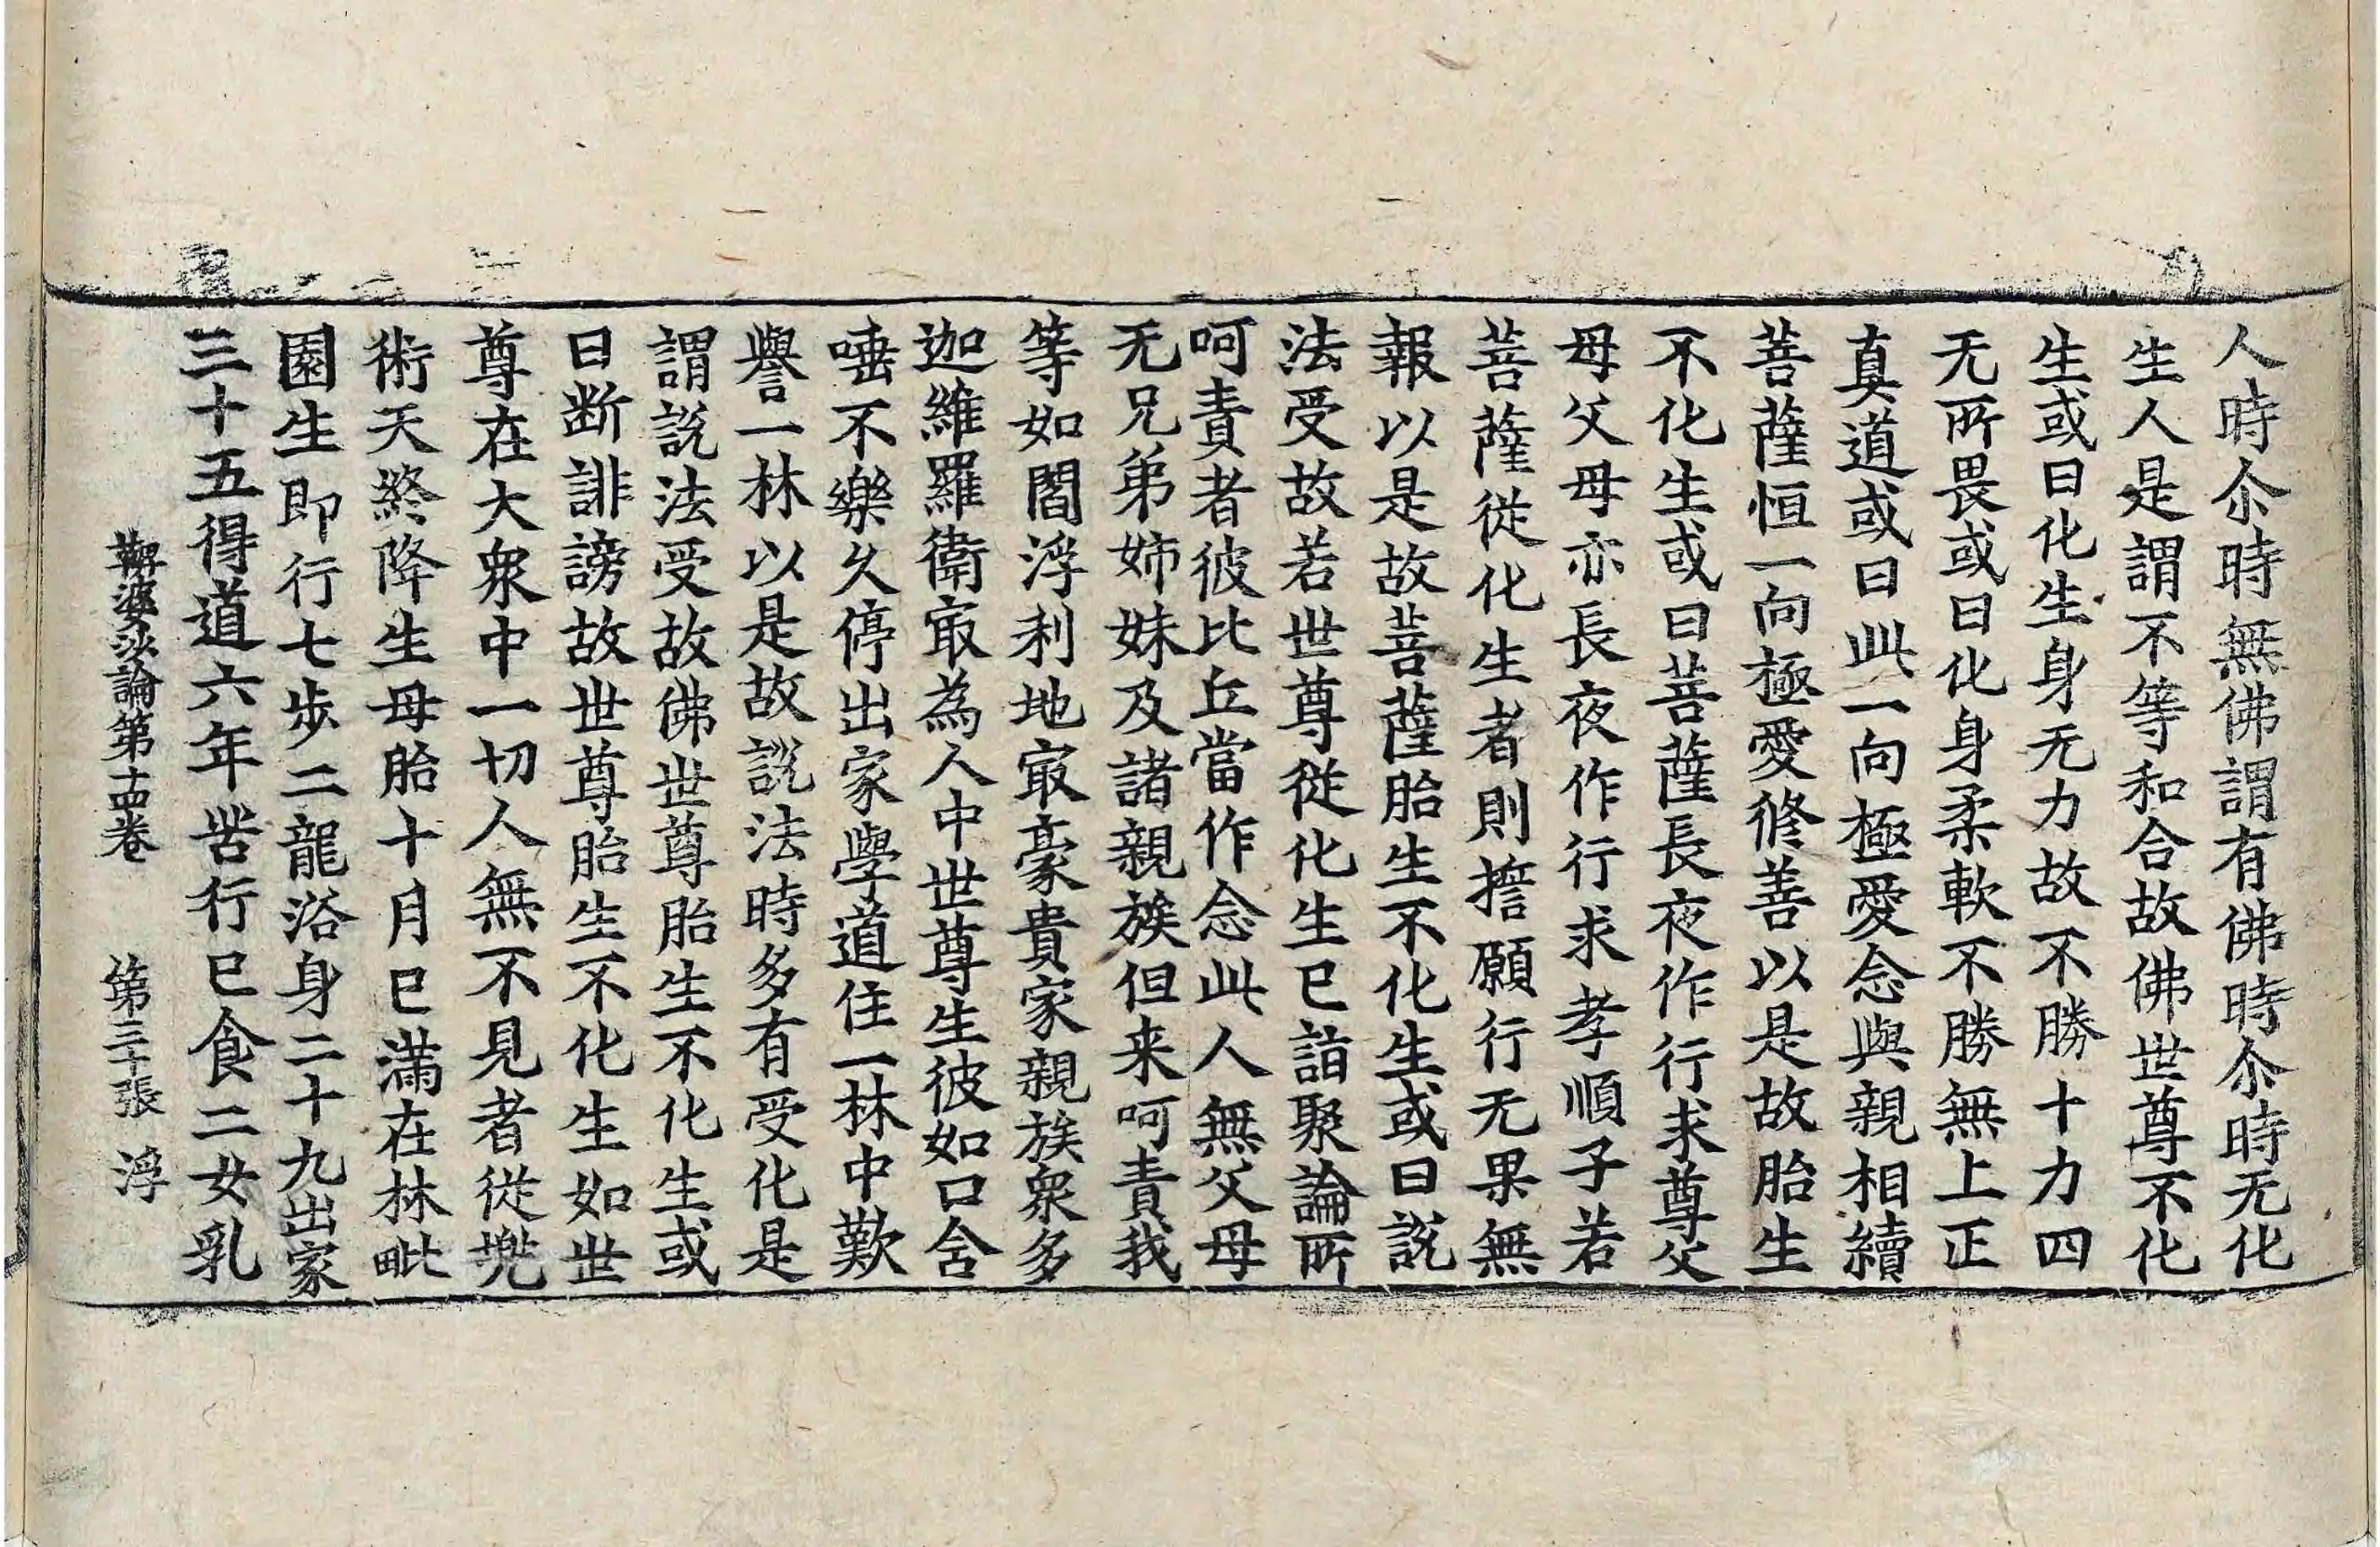 人時尒時無佛謂有佛時尒時无化
生人是謂不等和合故佛世尊不化
生或曰化生身无力故不勝十力四
无所畏或曰化身柔軟不勝無上正
真道或曰此一向極愛念與親相續
菩薩恒一向極愛修善以是故胎生
不化生或曰菩薩長夜作行求尊父
母父母亦長夜作行求孝順子若
菩薩從化生者則擔願行无果無
報以是故菩薩胎生不化生或曰說
法受故若世尊從化生已詣聚論所
呵責者彼比丘當作念此人無父母
无兄弟姉妹及諸親族但来呵責我
等如閻浮利地冣豪貴家親族衆多
迦維羅衛冣為人中世尊生彼如口舍
唾不樂久停出家學道住一林中歎
譽一林以是故說法時多有受化是
謂說法受故佛世尊胎生不化生或
曰断誹謗故世尊胎生不化生如世
尊在大衆中一切人無不見者從兠
術天終降生母胎十月已滿在林毗
園生即行七步二龍浴身二十九出家
三十五得道六年苦行已食二女乳
鞞婆沙論第十四卷 第三十張 浮